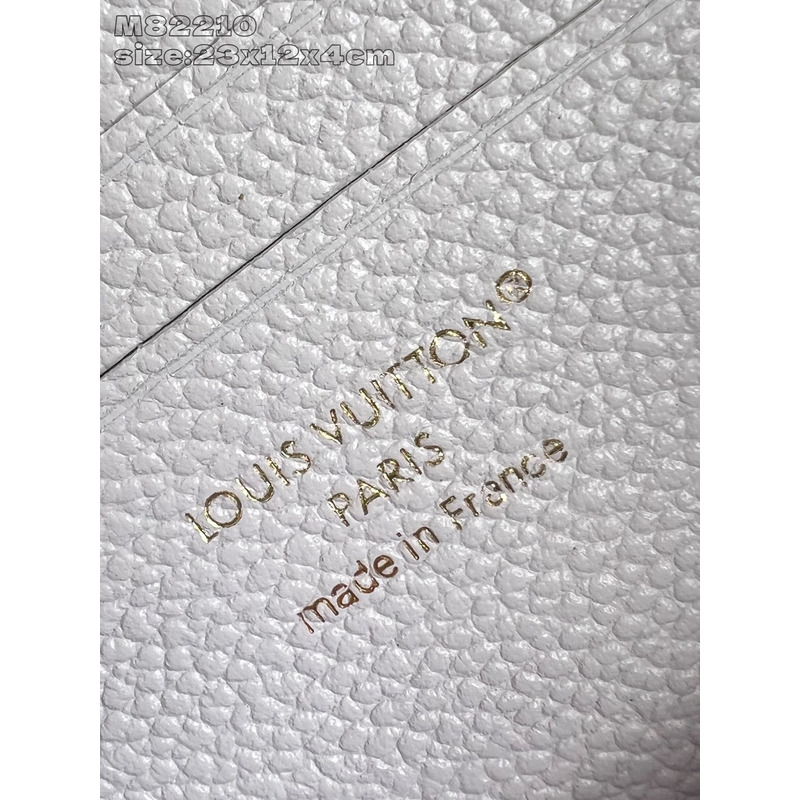 M82210
size:23x12x4cm
LOUIS VUITTON®
PARIS
made in France